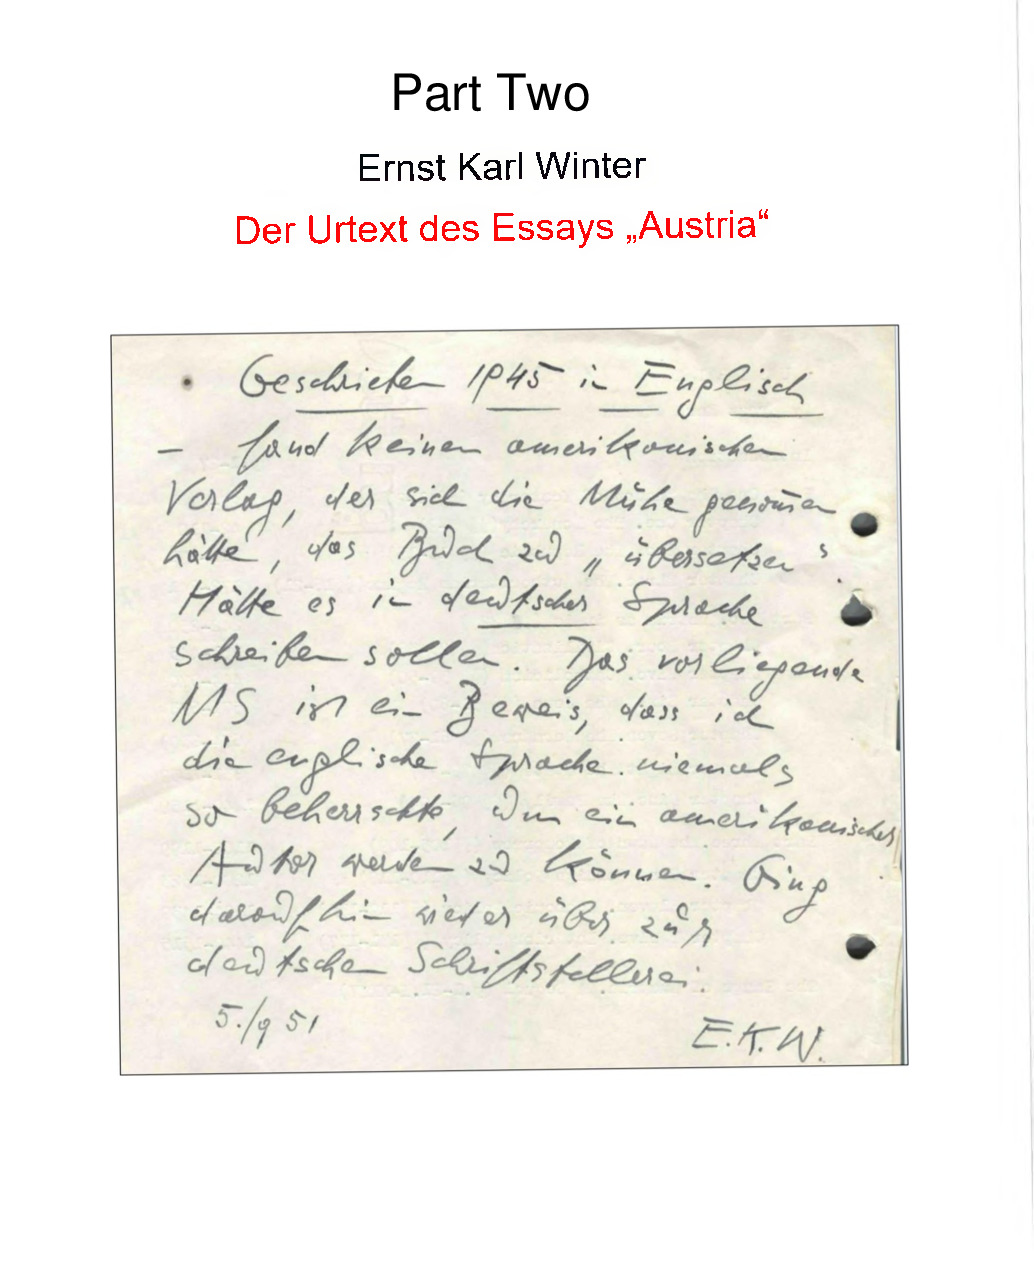 Part Two
Ernst Karl Winter
Der Urtext des Essays „Austria“
Geschrieben 1945 in Englisch
– fand keinen amerikanischen
Verlag, der sich die Mühe genom̄en
hätte, das Buch zu „übersetzen“.
Hätte es in deutscher Sprache
schreiben sollen. Das vorliegende
MS ist ein Beweis, dass ich
die englische Sprache niemals
so beherrschte, um ein amerikanischer
Autor werden zu können. Ging
daraufhin wieder über zur
deutschen Schriftstellerei.
5./9 51
E.K.W.